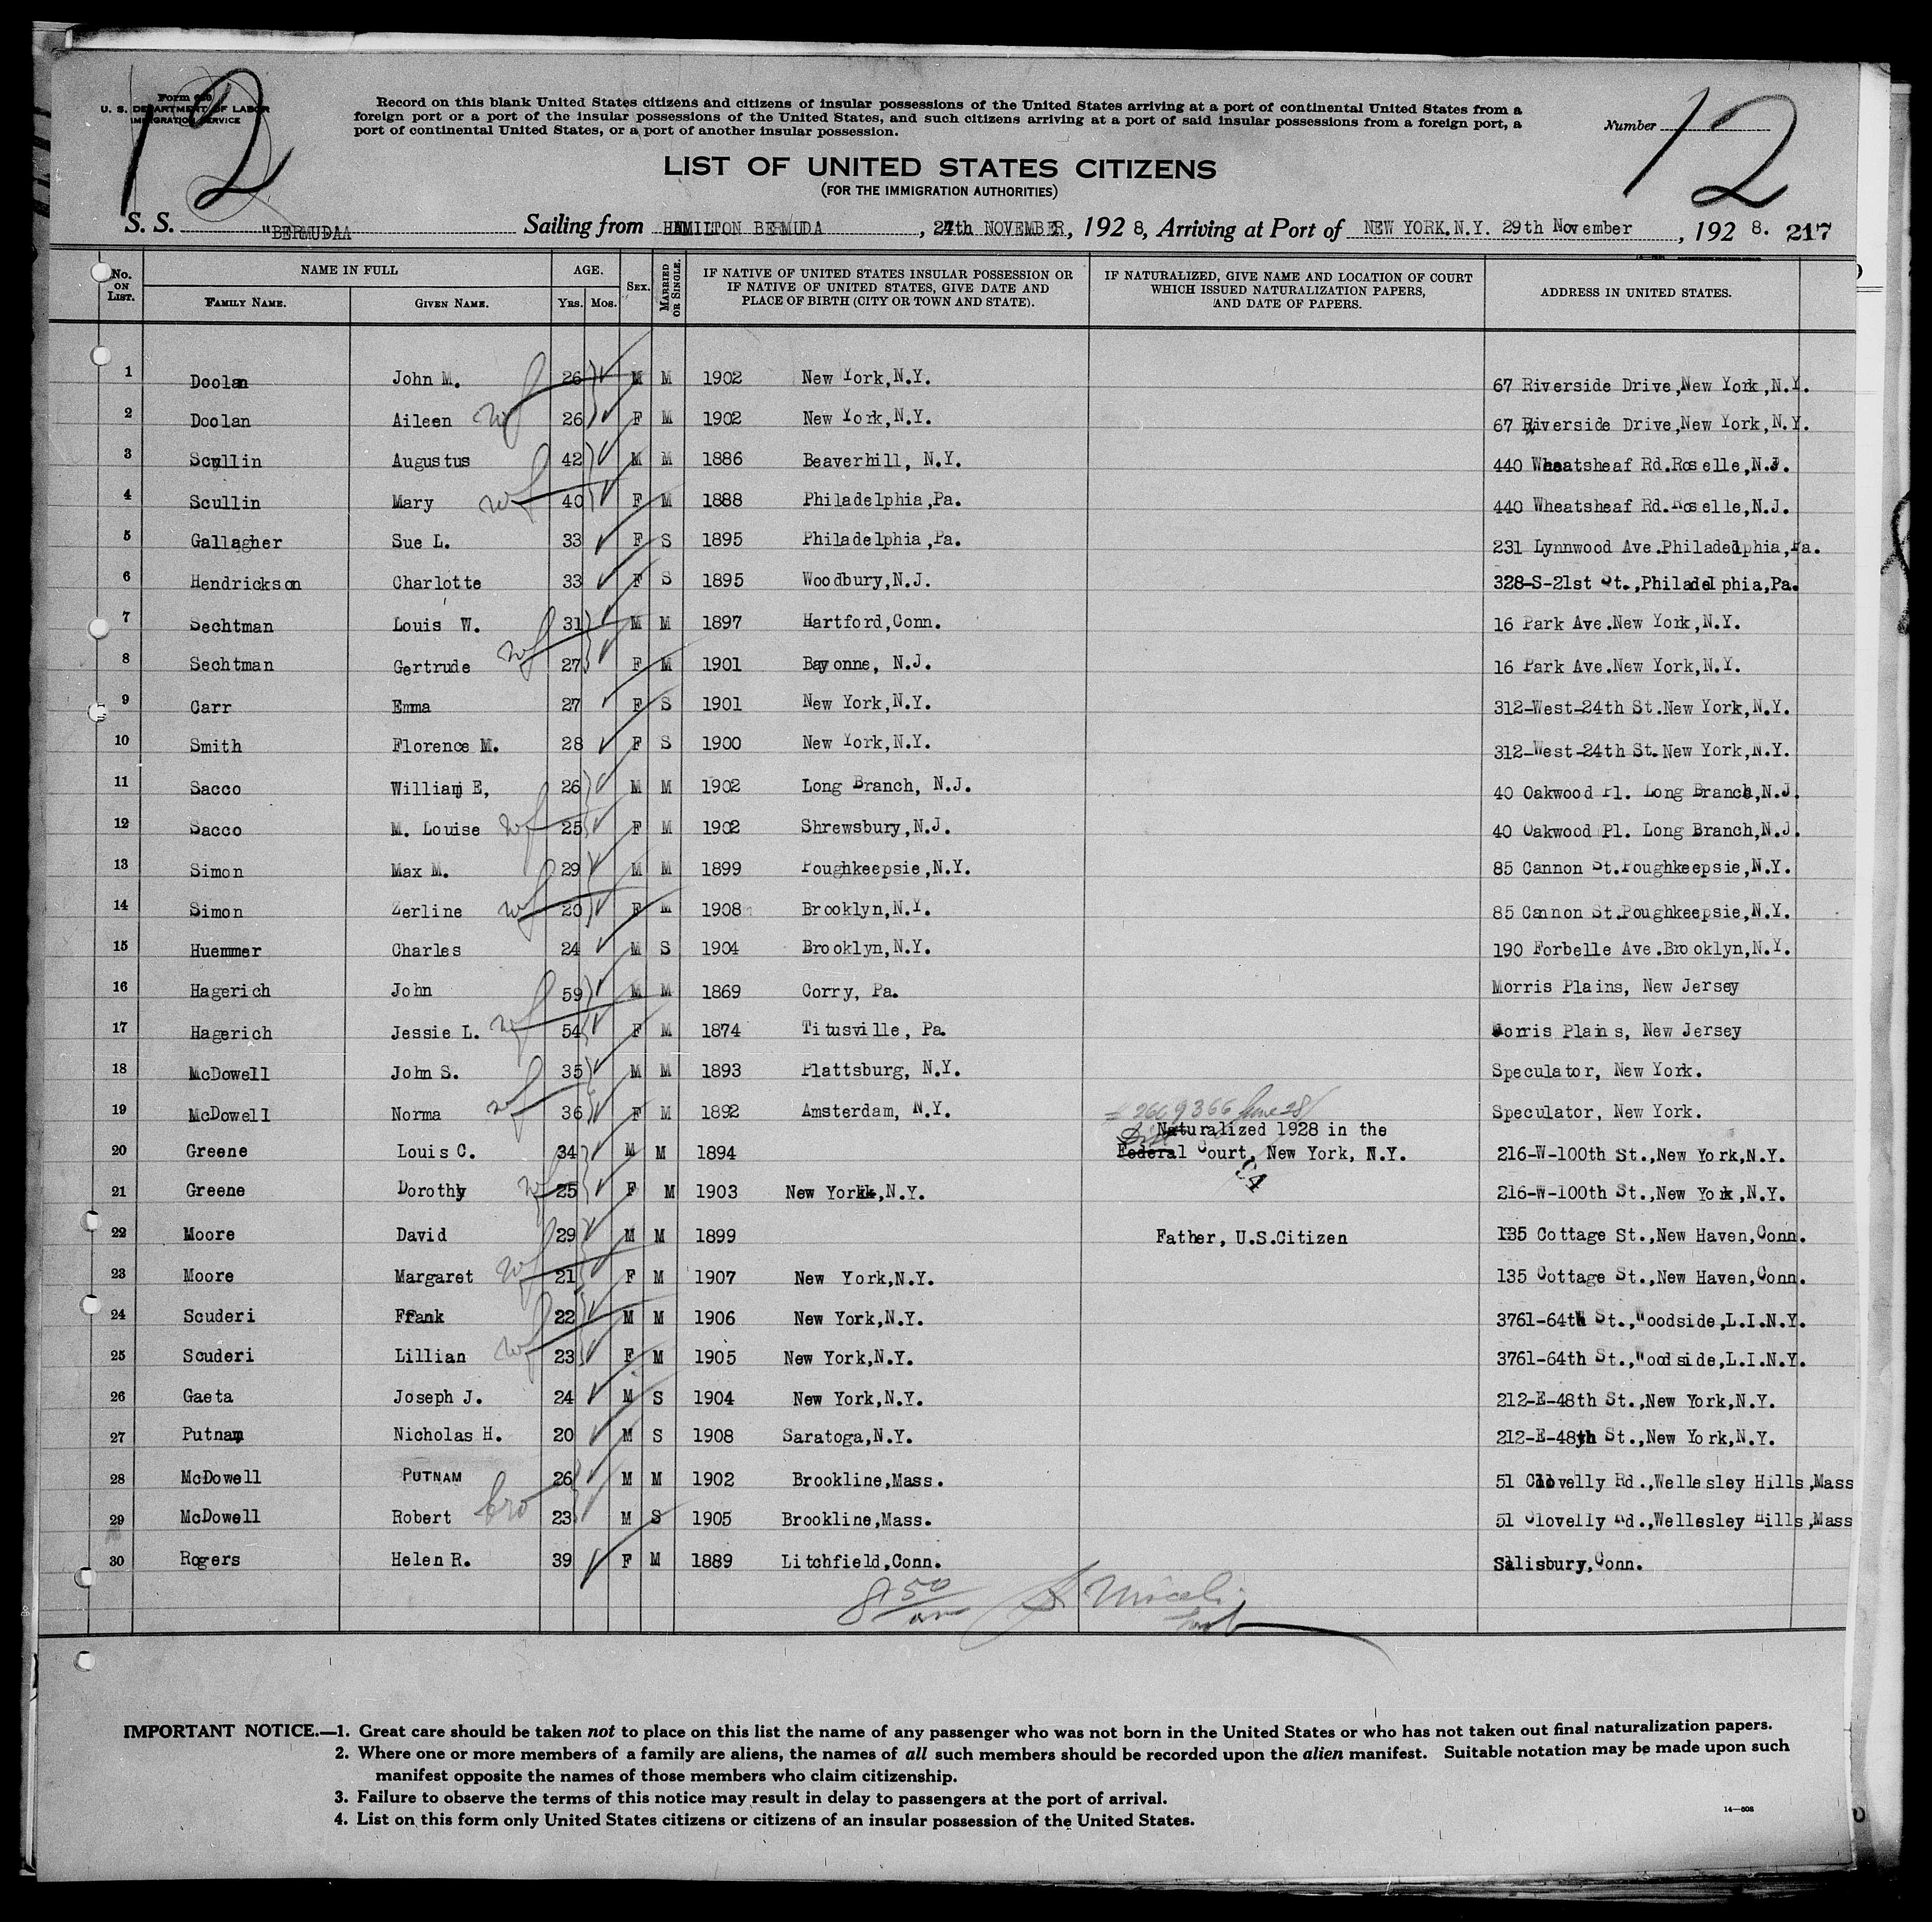 12
Form 630
U. S. DEPARTMENT OF LABOR
IMMIGRATION SERVICE
Record on this blank United States citizens and citizens of insular possessions of the United States arriving at a port of continental United States from a
foreign port or a port of the insular possessions of the United States, and such citizens arriving at a port of said insular possessions from a foreign port, a
port of continental United States, or a port of another insular possession.
Number 12
LIST OF UNITED STATES CITIZENS
(FOR THE IMMIGRATION AUTHORITIES)
S. S. "BERMUDAA Sailing from HAMILTON BERMUDA, 27th NOVEMBER, 1928, Arriving at Port of NEW YORK,N.Y. 29th November, 1928. 217
No. ON LIST. NAME IN FULL FAMILY NAME. GIVEN NAME. AGE. YRS. MOS. SEX. MARRIED OR SINGLE. IF NATIVE OF UNITED STATES INSULAR POSSESSION OR IF NATIVE OF UNITED STATES, GIVE DATE AND PLACE OF BIRTH (CITY OR TOWN AND STATE). IF NATURALIZED, GIVE NAME AND LOCATION OF COURT WHICH ISSUED NATURALIZATION PAPERS, AND DATE OF PAPERS. ADDRESS IN UNITED STATES.
1 Doolan John M. 26 M M 1902 New York,N.Y. 67 Riverside Drive,New York,N.Y.
2 Doolan Aileen wf 26 F M 1902 New York,N.Y. 67 Riverside Drive,New York,N.Y.
3 Scullin Augustus 42 M M 1886 Beaverhill, N.Y. 440 Wheatsheaf Rd.Roselle,N.J.
4 Scullin Mary wf 40 F M 1888 Philadelphia,Pa. 440 Wheatsheaf Rd.Roselle,N.J.
5 Gallagher Sue L. 33 F S 1895 Philadelphia,Pa. 231 Lynnwood Ave.Philadelphia,Pa.
6 Hendrickson Charlotte 33 F S 1895 Woodbury,N.J. 328-S-21st St.,Philadelphia,Pa.
7 Sechtman Louis W. 31 M M 1897 Hartford,Conn. 16 Park Ave.New York,N.Y.
8 Sechtman Gertrude wf 27 F M 1901 Bayonne, N.J. 16 Park Ave.New York,N.Y.
9 Carr Emma 27 F S 1901 New York,N.Y. 312-West-24th St.New York,N.Y.
10 Smith Florence M. 28 F S 1900 New York,N.Y. 312-West-24th St.New York,N.Y.
11 Sacco William E, 26 M M 1902 Long Branch, N.J. 40 Oakwood Pl. Long Branch,N.J.
12 Sacco M. Louise wf 25 F M 1902 Shrewsbury,N.J. 40 Oakwood Pl. Long Branch,N.J.
13 Simon Max M. 29 M M 1899 Poughkeepsie,N.Y. 85 Cannon St.Poughkeepsie,N.Y.
14 Simon Zerline wf 20 F M 1908 Brooklyn,N.Y. 85 Cannon St.Poughkeepsie,N.Y.
15 Huemmer Charles 24 M S 1904 Brooklyn,N.Y. 190 Forbelle Ave.Brooklyn,N.Y.
16 Hagerich John 59 M M 1869 Corry, Pa. Morris Plains, New Jersey
17 Hagerich Jessie L. wf 54 F M 1874 Titusville, Pa. Morris Plains, New Jersey
18 McDowell John S. 35 M M 1893 Plattsburg, N.Y. Speculator, New York.
19 McDowell Norma wf 36 F M 1892 Amsterdam, N.Y. Speculator, New York.
# 2609366 June 28/
Naturalized 1928 in the
20 Greene Louis C. 34 M M 1894 Federal Court, New York, N.Y. 216-W-100th St.,New York,N.Y.
21 Greene Dorothy wf 25 F M 1903 New York,N.Y. 216-W-100th St.,New York,N.Y.
22 Moore David 29 M M 1899 Father, U.S.Citizen 135 Cottage St.,New Haven,Conn.
23 Moore Margaret wf 21 F M 1907 New York,N.Y. 135 Cottage St.,New Haven,Conn.
24 Scuderi Frank 22 M M 1906 New York,N.Y. 3761-64th St.,Woodside,L.I.N.Y.
25 Scuderi Lillian wf 23 F M 1905 New York,N.Y. 3761-64th St.,Woodside,L.I.N.Y.
26 Gaeta Joseph J. 24 M S 1904 New York,N.Y. 212-E-48th St.,New York,N.Y.
27 Putnam Nicholas H. 20 M S 1908 Saratoga,N.Y. 212-E-48th St.,New York,N.Y.
28 McDowell PUTNAM 26 M M 1902 Brookline,Mass. 51 Clovelly Rd.,Wellesley Hills,Mass
29 McDowell Robert bro 23 M S 1905 Brookline,Mass. 51 Clovelly Rd.,Wellesley Hills,Mass
30 Rogers Helen R. 39 F M 1889 Litchfield,Conn. Salisbury,Conn.
8 50
IMPORTANT NOTICE.—1. Great care should be taken not to place on this list the name of any passenger who was not born in the United States or who has not taken out final naturalization papers.
2. Where one or more members of a family are aliens, the names of all such members should be recorded upon the alien manifest. Suitable notation may be made upon such
manifest opposite the names of those members who claim citizenship.
3. Failure to observe the terms of this notice may result in delay to passengers at the port of arrival.
4. List on this form only United States citizens or citizens of an insular possession of the United States.
14—608